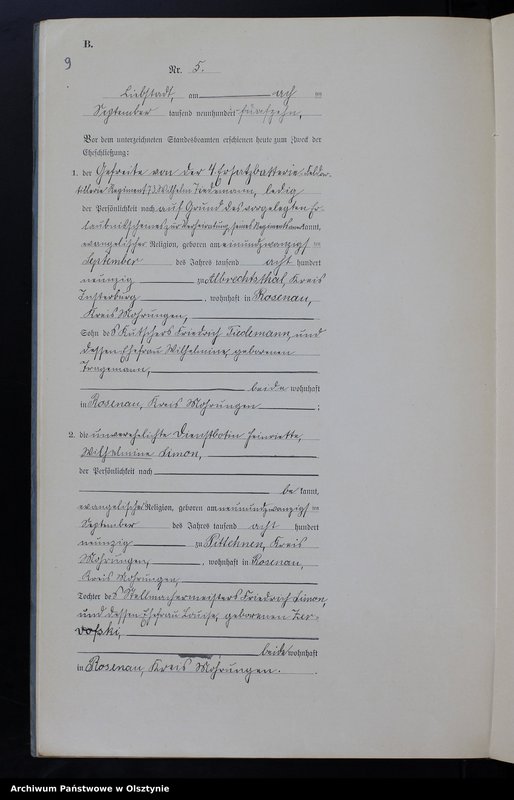 B.
9
Nr. 5.
Liebstadt, am ach ten
September tausend neunhundert fünfzehn,
Vor dem unterzeichneten Standesbeamten erschienen heute zum Zweck der
Eheschließung:
1. der Gefreite von der Ersatzbatterie Feldar-
tillerie Regiment 73 Wilhelm Tiedemann, ledig
der Persönlichkeit nach auf Grund des vorgelegten Er-
laubnisscheines zur Verheiratung seines Regiments kannt,
evangelischer Religion, geboren am einundzwanzigs ten
September des Jahres tausend acht hundert
neunzig zu Albrechtsthal, Kreis
Insterburg, wohnhaft in Rosenau,
Kreis Mohrungen,
Sohn des Kutschers Friedrich Tiedemann, und
dessen Ehefrau Wilhelmine, geborenen
Tragemann,
beide wohnhaft
in Rosenau, Kreis Mohrungen ;
2. die unverehelichte Dienstbotin Henriette,
Wilhelmine Simon,
der Persönlichkeit nach
be kannt,
evangelischer Religion, geboren am neunundzwanzigs ten
September des Jahres tausend acht hundert
neunzig zu Pittehnen, Kreis
Mohrungen, wohnhaft in Rosenau,
Kreis Mohrungen,
Tochter des Stellmachermeisters Friedrich Simon,
und dessen Ehefrau Louise, geborenen
beide wohnhaft
in Rosenau, Kreis Mohrungen.
Archiwum Państwowe w Olsztynie